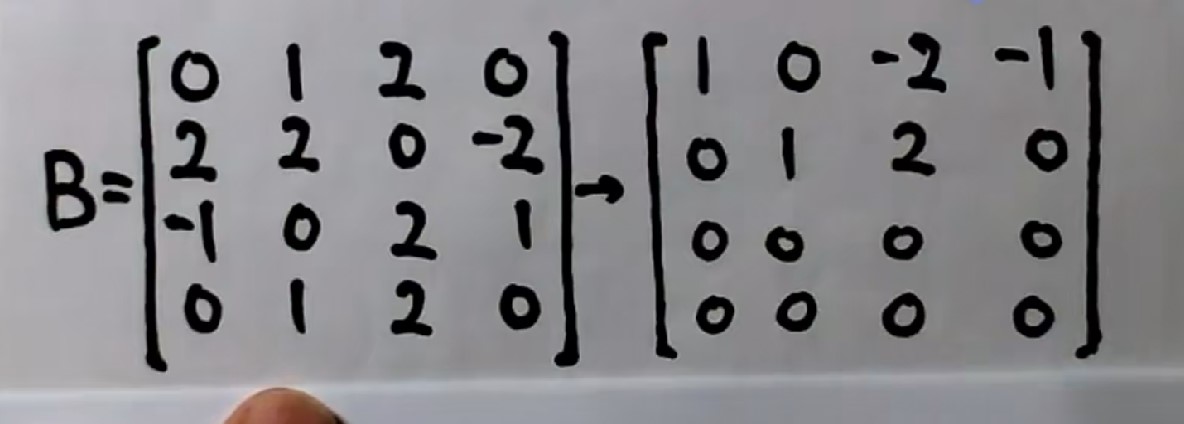 B = [0 1 2 0; 2 2 0 -2; -1 0 2 1; 0 1 2 0] → [1 0 -2 -1; 0 1 2 0; 0 0 0 0; 0 0 0 0]